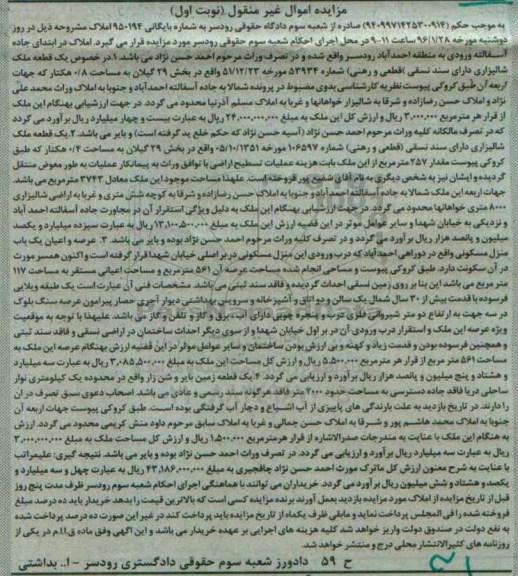 مزایده اموال غیر منقول (نوبت اول)
به موجب حکم (۹۴۰۹۹۷۱۴۲۵۳۰۰۹۱۴) صادره از شعبه سوم دادگاه حقوقی رودسر به شماره بایگانی ۹۵۰۱۹۴ املاک مشروحه ذیل در روز
دوشنبه مورخه ۹۶/۱/۲۸ ساعت ۱۱-۹ در محل اجرای احکام شعبه سوم حقوقی رودسر مورد مزایده قرار می گیرد. املاک در ابتدای جاده
آسفالته ورودی به منطقه احمدآباد رودسر واقع شده و در تصرف وراث مرحوم احمد حسن نژاد می باشد. ۱.در خصوص یک قطعه ملک
شالیزاری دارای سند نسقی (قطعی و رهنی) شماره ۵۳۹۳۴ مورخه ۵۷/۱۲/۲۳ واقع در بخش ۲۹ گیلان به مساحت ۰/۸ هکتار که جهات
اربعه آن طبق کروکی پیوست نظریه کارشناسی بدوی مضبوط در پرونده شمالا به جاده آسفالته احمدآباد و جنوبا به املاک وراث محمد علی
نژاد و املاک حسن رضازاده و شرقا به شالیزار خواهانها و غربا به املاک مسلم آذرنیا محدود می گردد. در جهت ارزشیابی بهنگام این ملک
از قرار هر مترمربع ۳,۰۰۰,۰۰۰ ریال و ارزش کل این ملک به مبلغ ۲۴,۰۰۰,۰۰۰,۰۰۰ ریال به عبارت بیست و چهار میلیارد ریال بر آورد می گردد
که در تصرف مالکانه کلیه وراث مرحوم احمد حسن نژاد (آسیه حسن نژاد که حکم خلع ید گرفته است) و بایر می باشد. ۲.یک قطعه ملک
شالیزاری دارای سند نسقی (قطعی و رهنی) شماره ۱۰۶۵۹۷ مورخه ۰۵/۱۰/۱۳۵۱ واقع در بخش ۲۹ گیلان به مساحت ۰/۴ هکتار که طبق
کروکی پیوست مقدار ۲۵۷ مترمربع از این ملک بابت هزینه عملیات تسطیح اراضی با توافق وراث به پیمانکار عملیات به طور معوض منتقل
گردیده و ایشان نیز به شخص دیگری به نام آقای شفیع پور فروخته است. علیهذا مساحت موجود این ملک معادل ۳۷۴۳ مترمربع می باشد.
جهات اربعه این ملک شمالا به جاده آسفالته احمد آباد و جنوبا به املاک حسن رضازاده و شرقا به کوچه شش متری و غربا به اراضی شالیزاری
۸۰۰۰ متری خواهانها محدود می گردد. در جهت ارزشیابی بهنگام این ملک به دلیل ویژگی استقرار آن در مجاورت جاده آسفالته احمد آباد
و نزدیکی به خیابان شهدا و سایر عوامل موثر در این قضیه ارزش این ملک به مبلغ ۱۳,۱۰۰,۵۰۰,۰۰۰ ریال به عبارت سیزده میلیارد و یکصد
میلیون و پانصد هزار ریال بر آورد می گردد و در تصرف کلیه وراث مرحوم احمد حسن نژاد بوده و بایر می باشد. ۳. عرصه و اعیان یک باب
منزل مسکونی واقع در دوراهی احمدآباد که درب ورودی این منزل مسکونی در بر اصلی خیابان شهدا قرار گرفته است و اکنون همسر مورث
در آن سکونت دارد. طبق کروکی پیوست و مساحی انجام شده مساحت عرصه آن ۵۶۱ مترمربع و مساحت اعیانی مستقر به مساحت ۱۱۷
متر مربع می باشد این بنا بر روی زمین نسقی احداث گردیده و فاقد سند ثبتی می باشد. مشخصات فنی آن عبارت است یک طبقه ویلایی
فرسوده با قدمت بیش از ۳۰ سال شامل یک سالن و دو اتاق و آشپزخانه و سرویس بهداشتی دیوار آجری حصار پیرامون عرصه سنگ بلوک
در سه جهت به ارتفاع دو متر شیروانی فلزی درب و پنجره چوبی دارای آب برق و گاز و تلفن و گاز می باشد. علیهذا با توجه به موقعیت
ویژه عرصه این ملک و استقرار درب ورودی آن در بر اول خیابان شهدا و از سوی دیگر احداث ساختمان در اراضی نسقی و فاقد سند ثبتی
و همچنین فرسوده بودن و قدمت زیاد و کهنه و بی ارزش بودن ساختمان و سایر عوامل موثر در این قضیه ارزش بهنگام عرصه این ملک به
مساحت ۵۶۱ متر مربع از قرار هر مترمربع ۵,۵۰۰,۰۰۰ ریال و ارزش کل مساحت این ملک به مبلغ ۳,۰۸۵,۵۰۰,۰۰۰ ریال به عبارت سه میلیارد
و هشتاد و پنج میلیون و پانصد هزار ریال بر آورد و ارزیابی می گردد. ۴.یک قطعه زمین بایر و شن زار واقع در محدوده یک کیلومتری نوار
ساحلی دریا فاقد جاده دسترسی به مساحت حدود ۲۰۰۰ متر فاقد هرگونه سند رسمی و عادی می باشد. اصحاب دعوی سبق تصرف در آن
را دارند. در تاریخ بازدید به علت بارندگی های پاییزی از آب اشباع و دچار آب گرفتگی بوده است. طبق کروکی پیوست جهات اربعه آن
جنوبا به املاک محمد هاشم پور و شرقا به املاک حسن جمالی و غربا به املاک سابق مرحوم داود منش کریمی محدود می گردد. ارزش
به هنگام این ملک با عنایت به مندرجات صدرالاشاره از قرار هرمترمربع ۱,۵۰۰,۰۰۰ ریال و ارزش کل مساحت ملک به مبلغ ۳,۰۰۰,۰۰۰,۰۰۰
ریال به عبارت سه میلیارد ریال بر آورد و ارزیابی می گردد. در تصرف وراث احمد حسن نژاد بوده و بایر می باشد. نتیجه گیری: علیمراتب
با عنایت به شرح معنون ارزش کل ماترک مورث احمد حسن نژاد چافجیری به مبلغ ۴۳,۱۸۶,۰۰۰,۰۰۰ ریال به عبارت چهل و سه میلیارد و
یکصد و هشتاد و شش میلیون ریال بر آورد می گردد. خریداران می توانند با هماهنگی اجرای احکام شعبه سوم رودسر ظرف مدت پنج روز
قبل از تاریخ مزایده از املاک مورد مزایده بازدید بعمل آورند برنده مزایده کسی است که بالاترین قیمت را بدهد خریدار باید ده درصد مبلغ
فروخته شده را فی المجلس پرداخت نماید و مابقی ظرف یکماه از تاریخ مزایده باید پرداخت کند در غیر این صورت ده درصد پرداخت شده
به نفع دولت در صندوق دولت واریز خواهد شد کلیه هزینه های اجرایی بر عهده خریدار می باشد و این آگهی وفق ماده ق.ا.م در یکی از
روزنامه های کثیرالانتشار محلی درج و منتشر خواهد شد.
ح ۵۹ دادورز شعبه سوم حقوقی دادگستری رودسر – ا... بداشتی